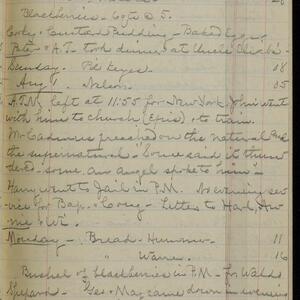 Blackberries - 6 qts @ 5.
Cong - Custard Pudding - Baked
Pete & A.T. took dinner at Uncle
Sunday. Pd Keyes 08
Aug 1. Nelson 05
A.T.N. left at 11:55 for New York. John went
with him to church (Epis) & to train.
preached on the natural &
the supernatural - said it thund
dered - some an angel spoke to him -
Harry went to Jail in P.M. No evening ser
vice for Bap. & Cong - Letter to
me & W.
Monday - Bread - Hummer - 11
" Warner 16
Bushel of blackberries in P.M. - for
Geo & May came down in evening